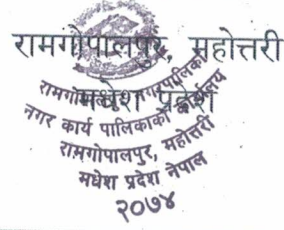 रामगोपालपुर, महोत्तरी
मधेश प्रदेश
रामगोपालपुर नगरपालिका
नगर कार्य पालिकाको कार्यालय
रामगोपालपुर, महोत्तरी
मधेश प्रदेश नेपाल
२०७४